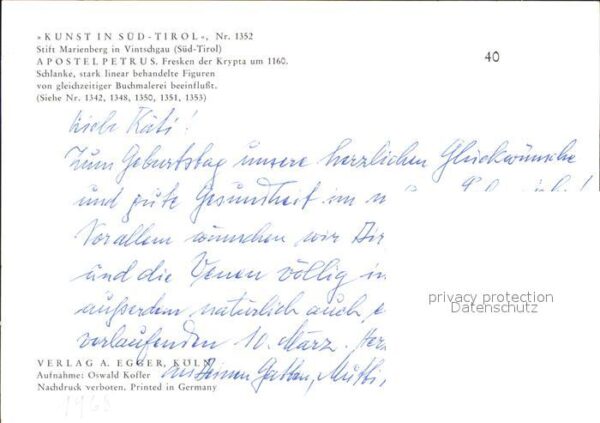 »KUNST IN SÜD-TIROL«, Nr. 1352
Stift Marienberg in Vintschgau (Süd-Tirol)
APOSTELPETRUS. Fresken der Krypta um 1160.
Schlanke, stark linear behandelte Figuren
von gleichzeitiger Buchmalerei beeinflußt.
(Siehe Nr. 1342, 1348, 1350, 1351, 1353)
40
Liebe Käti!
Zum Geburtstag unsere herzlichen Glückwünsche
und gute Gesundheit im
Vor allem wünschen wir Dir
und die Venen völlig in
außerdem natürlich auch
verlaufenden 10. März.
Deinen Gatten, Mutti,
privacy protection
Datenschutz
VERLAG A. EGGER, KÖLN
Aufnahme: Oswald Kofler
Nachdruck verboten. Printed in Germany
1968